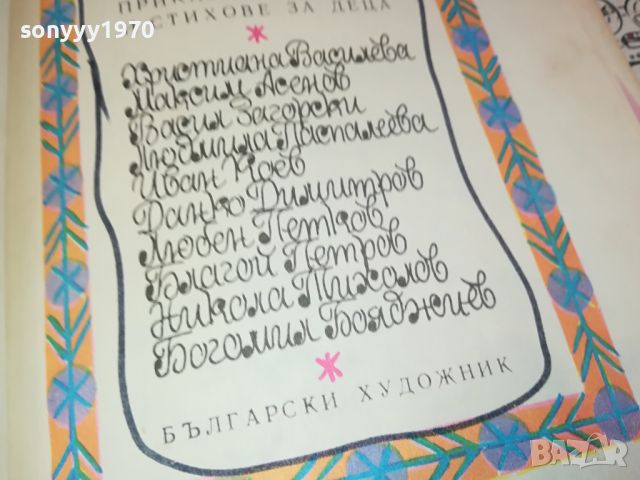 sonyyy1970
СТИХОВЕ ЗА ДЕЦА
Христиана Василева
Максим Асенов
Васил Загорски
Людмила Паспалеева
Иван Коев
Данко Димитров
Любен Петков
Благой Петров
Никола Тихолов
Богомил Бояджиев
БЪЛГАРСКИ ХУДОЖНИК
BAZAR
bg